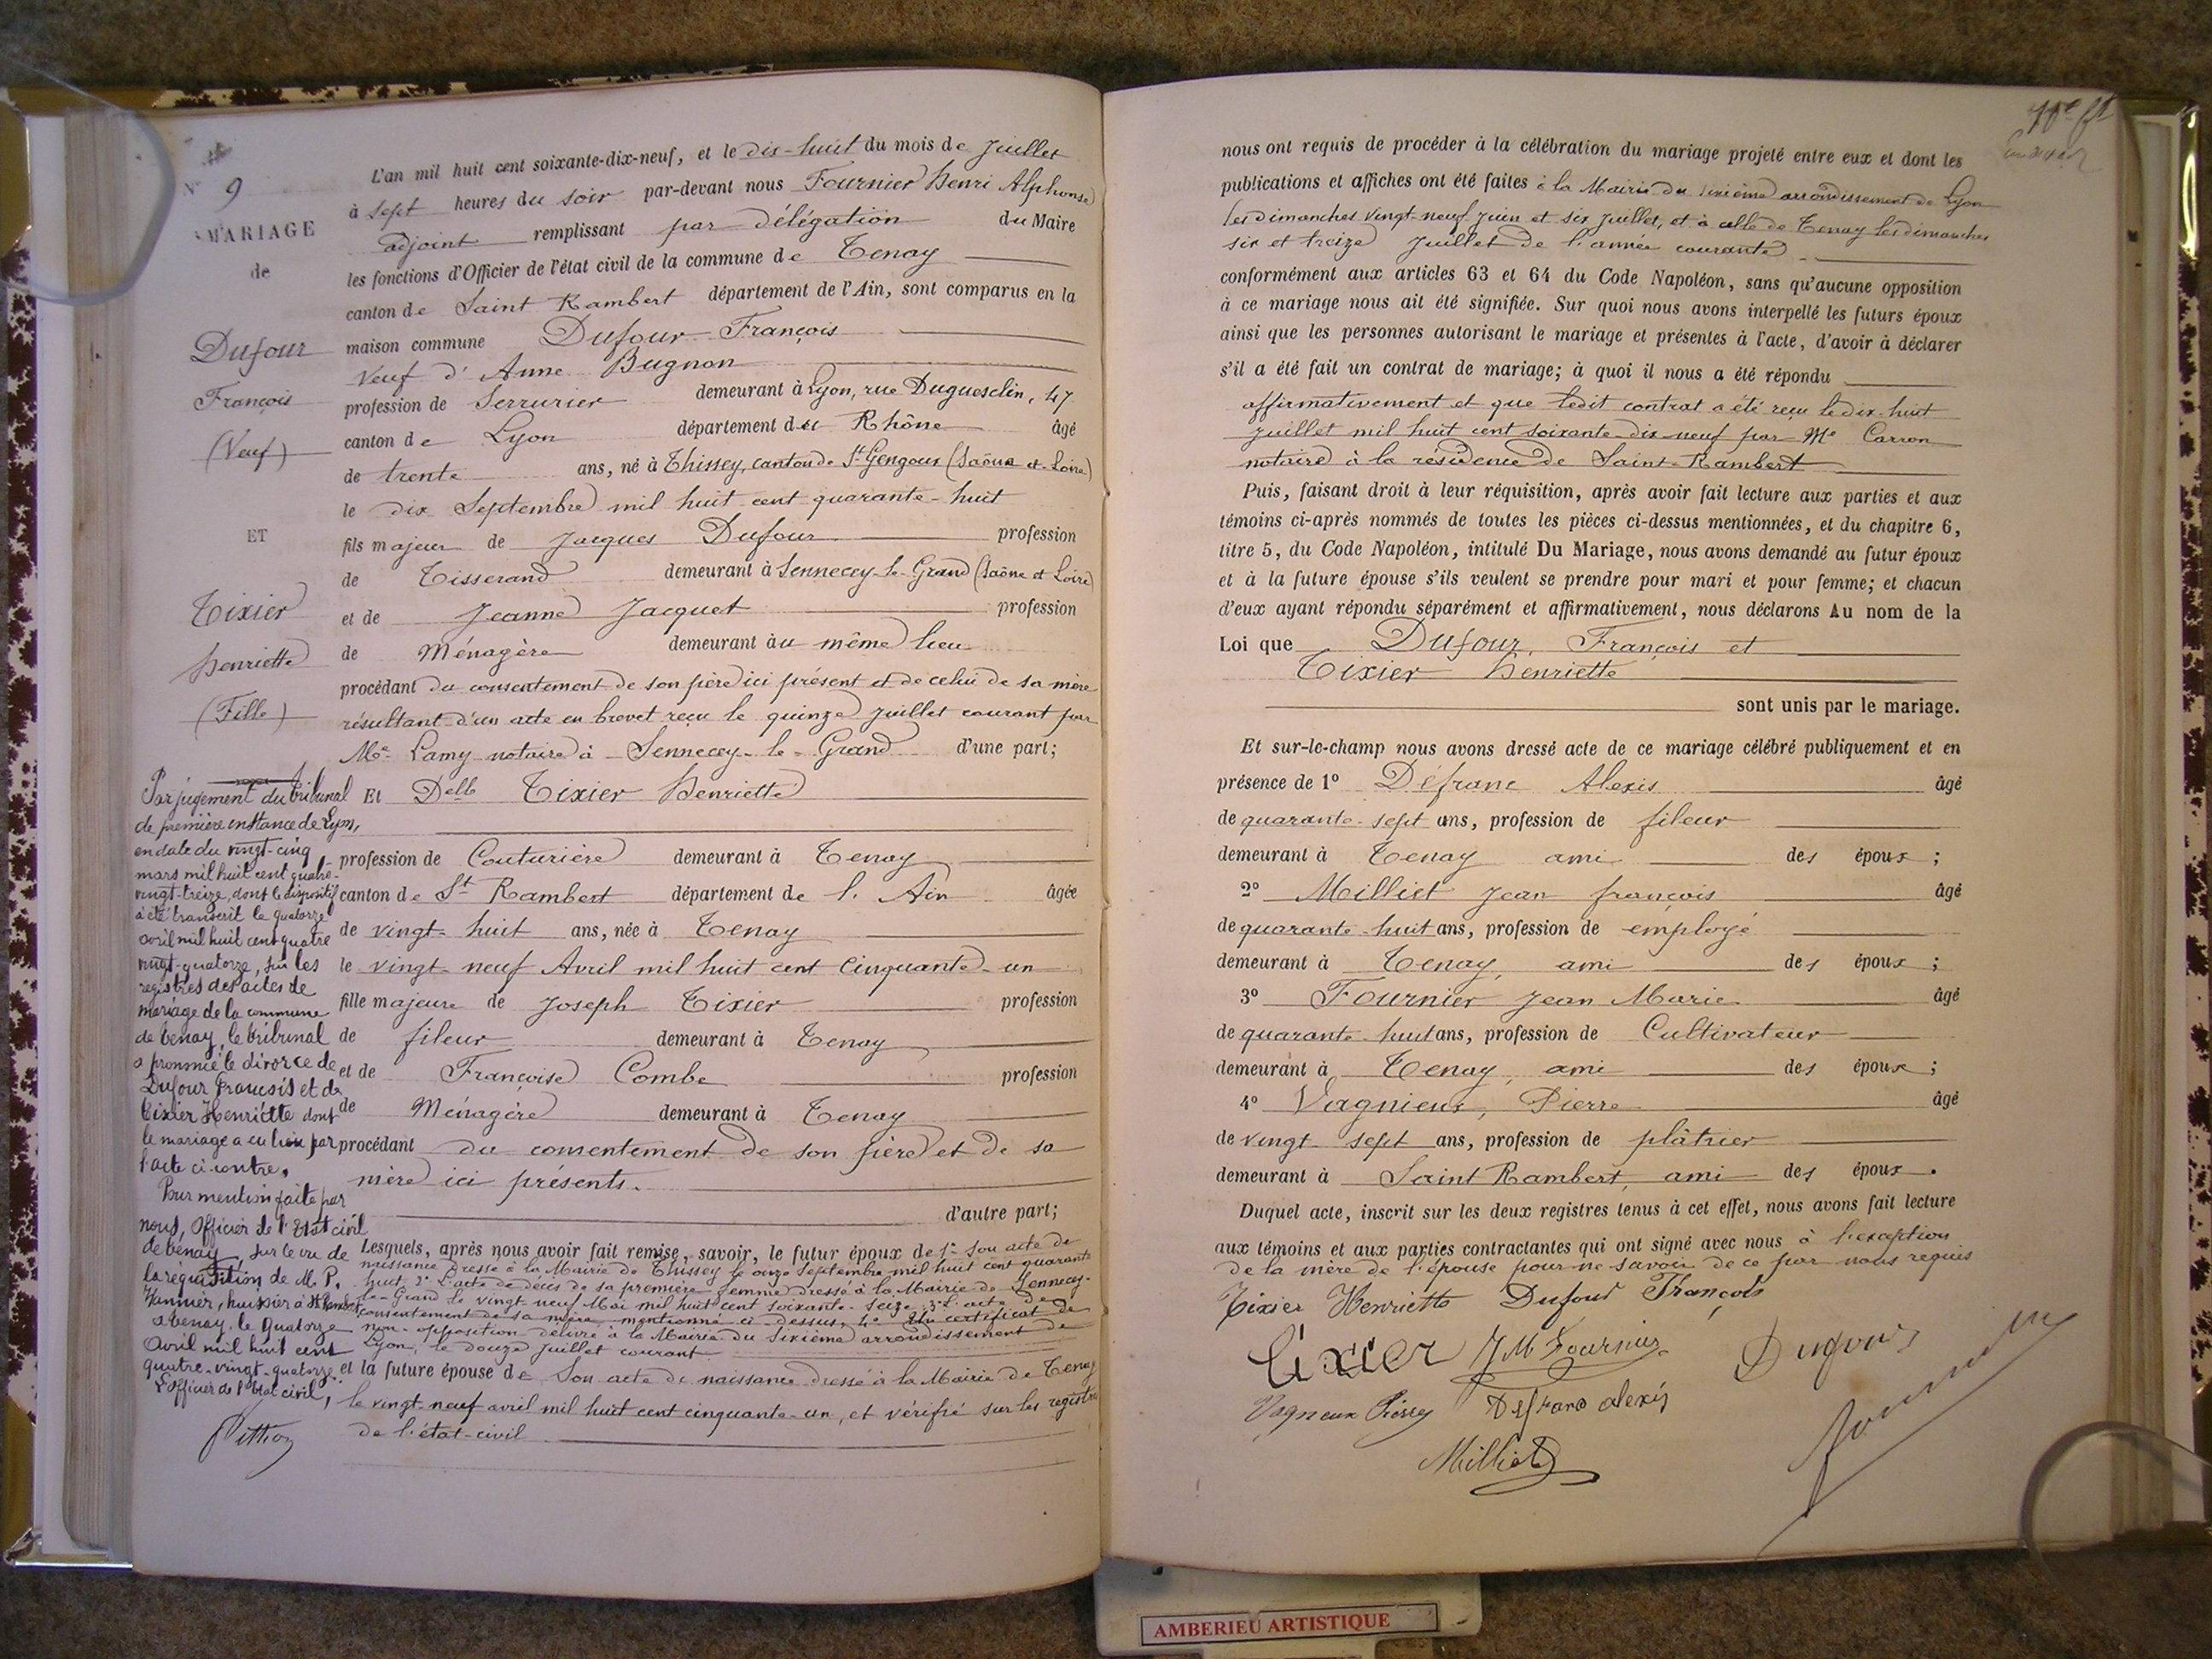 N° 9
MARIAGE
de
Dufour
François
(Veuf)
ET
Tixier
Henriette
(Fille)
Par jugement du tribunal
de première instance de Lyon,
en date du vingt-cinq
mars mil huit cent quatre-
vingt-treize, dont le dispositif
a été transcrit le quatorze
avril mil huit cent quatre
vingt-quatorze, sur les
registres des actes de
mariage de la commune
de Tenay, le tribunal
a prononcé le divorce de
Dufour François et de
Tixier Henriette dont
le mariage a eu lieu par
l'acte ci-contre.
Pour mention faite par
nous, Officier de l'Etat civil
de Tenay, sur le vu de
la réquisition de M. P.
huissier à St Rambert
à Tenay, le quatorze
avril mil huit cent
quatre-vingt-quatorze.
L'officier de l'Etat civil,
L'an mil huit cent soixante-dix-neuf, et le dix-huit du mois de Juillet
à sept heures du soir par-devant nous Fournier Henri Alphonse
adjoint remplissant par délégation du Maire
les fonctions d'Officier de l'état civil de la commune de Tenay
canton de Saint Rambert département de l'Ain, sont comparus en la
maison commune Dufour François
Veuf d'Anne Bugnon
profession de Serrurier demeurant à Lyon, rue Duguesclin, 47
canton de Lyon département du Rhône âgé
de trente ans, né à Thissey, canton de St Gengoux (Saône et Loire)
le dix Septembre mil huit cent quarante-huit
fils majeur de Jacques Dufour profession
de Tisserand demeurant à Sennecey-le-Grand (Saône et Loire)
et de Jeanne Jacquet profession
de Ménagère demeurant au même lieu
procédant du consentement de son père ici présent et de celui de sa mère
résultant d'un acte en brevet reçu le quinze Juillet courant par
Me Lamy notaire à Sennecey-le-Grand d'une part;
Et Delle Tixier Henriette
profession de Couturière demeurant à Tenay
canton de St Rambert département de l'Ain âgée
de vingt-huit ans, née à Tenay
le vingt-neuf Avril mil huit cent Cinquante-un
fille majeure de Joseph Tixier profession
de fileur demeurant à Tenay
et de Françoise Combe profession
de Ménagère demeurant à Tenay
procédant du consentement de son père et de sa
mère ici présents.
d'autre part;
Lesquels, après nous avoir fait remise, savoir, le futur époux de 1° Son acte de
naissance dressé à la Mairie de Thissey le onze Septembre mil huit cent quarante
huit, 2° L'acte de décès de sa première femme dressé à la Mairie de Sennecey-
le-Grand le vingt-neuf Mai mil huit cent soixante-seize, 3° L'acte de
consentement de sa mère, mentionné ci-dessus, 4° Un certificat de
non-opposition délivré à la Mairie du Sixième arrondissement de
Lyon, le douze Juillet courant
et la future épouse de Son acte de naissance dressé à la Mairie de Tenay
le vingt-neuf avril mil huit cent cinquante-un, et vérifié sur les registres
de l'état-civil
nous ont requis de procéder à la célébration du mariage projeté entre eux et dont les
publications et affiches ont été faites à la Mairie du sixième arrondissement de Lyon
les dimanches vingt-neuf Juin et six Juillet, et à celle de Tenay les dimanches
six et treize Juillet de l'année courante
conformément aux articles 63 et 64 du Code Napoléon, sans qu'aucune opposition
à ce mariage nous ait été signifiée. Sur quoi nous avons interpellé les futurs époux
ainsi que les personnes autorisant le mariage et présentes à l'acte, d'avoir à déclarer
s'il a été fait un contrat de mariage; à quoi il nous a été répondu
affirmativement et que ledit contrat a été reçu le dix-huit
juillet mil huit cent soixante-dix-neuf par Me Carron
notaire à la résidence de Saint-Rambert
Puis, faisant droit à leur réquisition, après avoir fait lecture aux parties et aux
témoins ci-après nommés de toutes les pièces ci-dessus mentionnées, et du chapitre 6,
titre 5, du Code Napoléon, intitulé Du Mariage, nous avons demandé au futur époux
et à la future épouse s'ils veulent se prendre pour mari et pour femme; et chacun
d'eux ayant répondu séparément et affirmativement, nous déclarons Au nom de la
Loi que Dufour, François et
Tixier Henriette
sont unis par le mariage.
Et sur-le-champ nous avons dressé acte de ce mariage célébré publiquement et en
présence de 1° Défranc Alexis âgé
de quarante-sept ans, profession de fileur
demeurant à Tenay ami des époux;
2° Milliet Jean françois âgé
de quarante-huit ans, profession de employé
demeurant à Tenay, ami des époux;
3° Fournier Jean Marie âgé
de quarante-huit ans, profession de Cultivateur
demeurant à Tenay, ami des époux;
4° Vagnieux, Pierre âgé
de vingt-sept ans, profession de plâtrier
demeurant à Saint Rambert, ami des époux.
Duquel acte, inscrit sur les deux registres tenus à cet effet, nous avons fait lecture
aux témoins et aux parties contractantes qui ont signé avec nous à l'exception
de la mère de l'épouse pour ne savoir de ce par nous requis
Tixier Henriette Dufour François
Tixier J M Fournier Dufour
Vagneux Pierre Défranc alexis
Milliet Fournier
AMBERIEU ARTISTIQUE